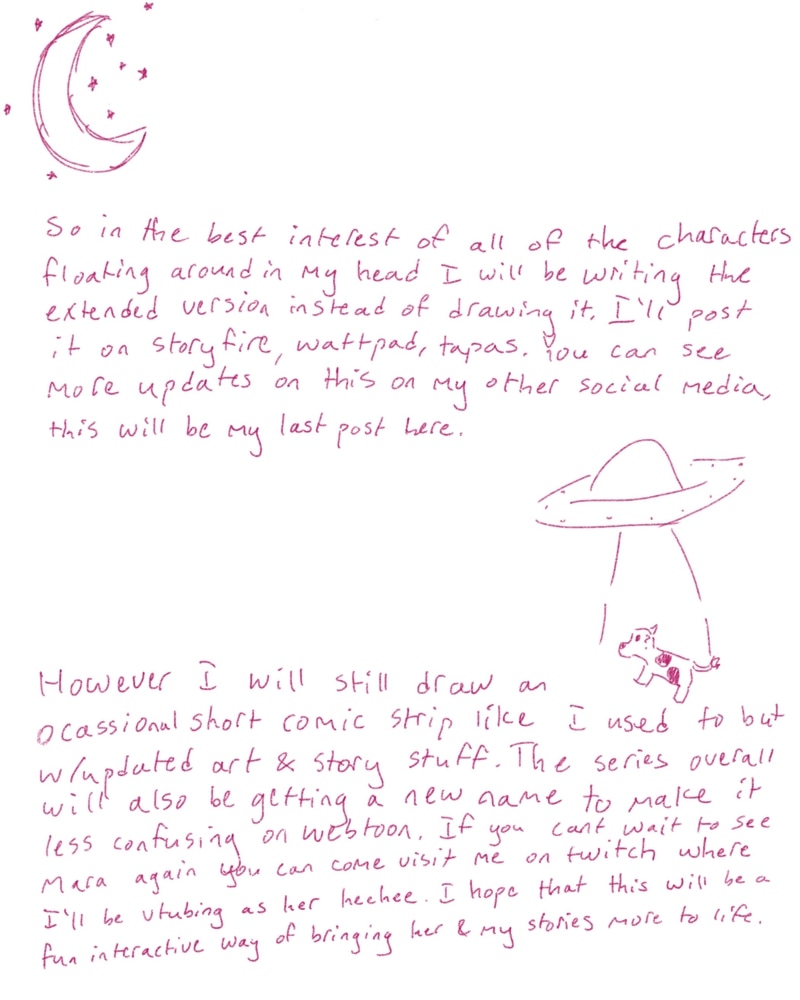 So in the best interest of all of the characters
floating around in my head I will be writing the
extended version instead of drawing it. I'll post
it on storyfire, wattpad, tapas. You can see
more updates on this on my other social media,
this will be my last post here.
However I will still draw an
ocassional short comic strip like I used to but
w/updated art & story stuff. The series overall
will also be getting a new name to make it
less confusing on webtoon. If you cant wait to see
Mara again you can come visit me on twitch where
I'll be vtubing as her heehee. I hope that this will be a
fun interactive way of bringing her & my stories more to life.